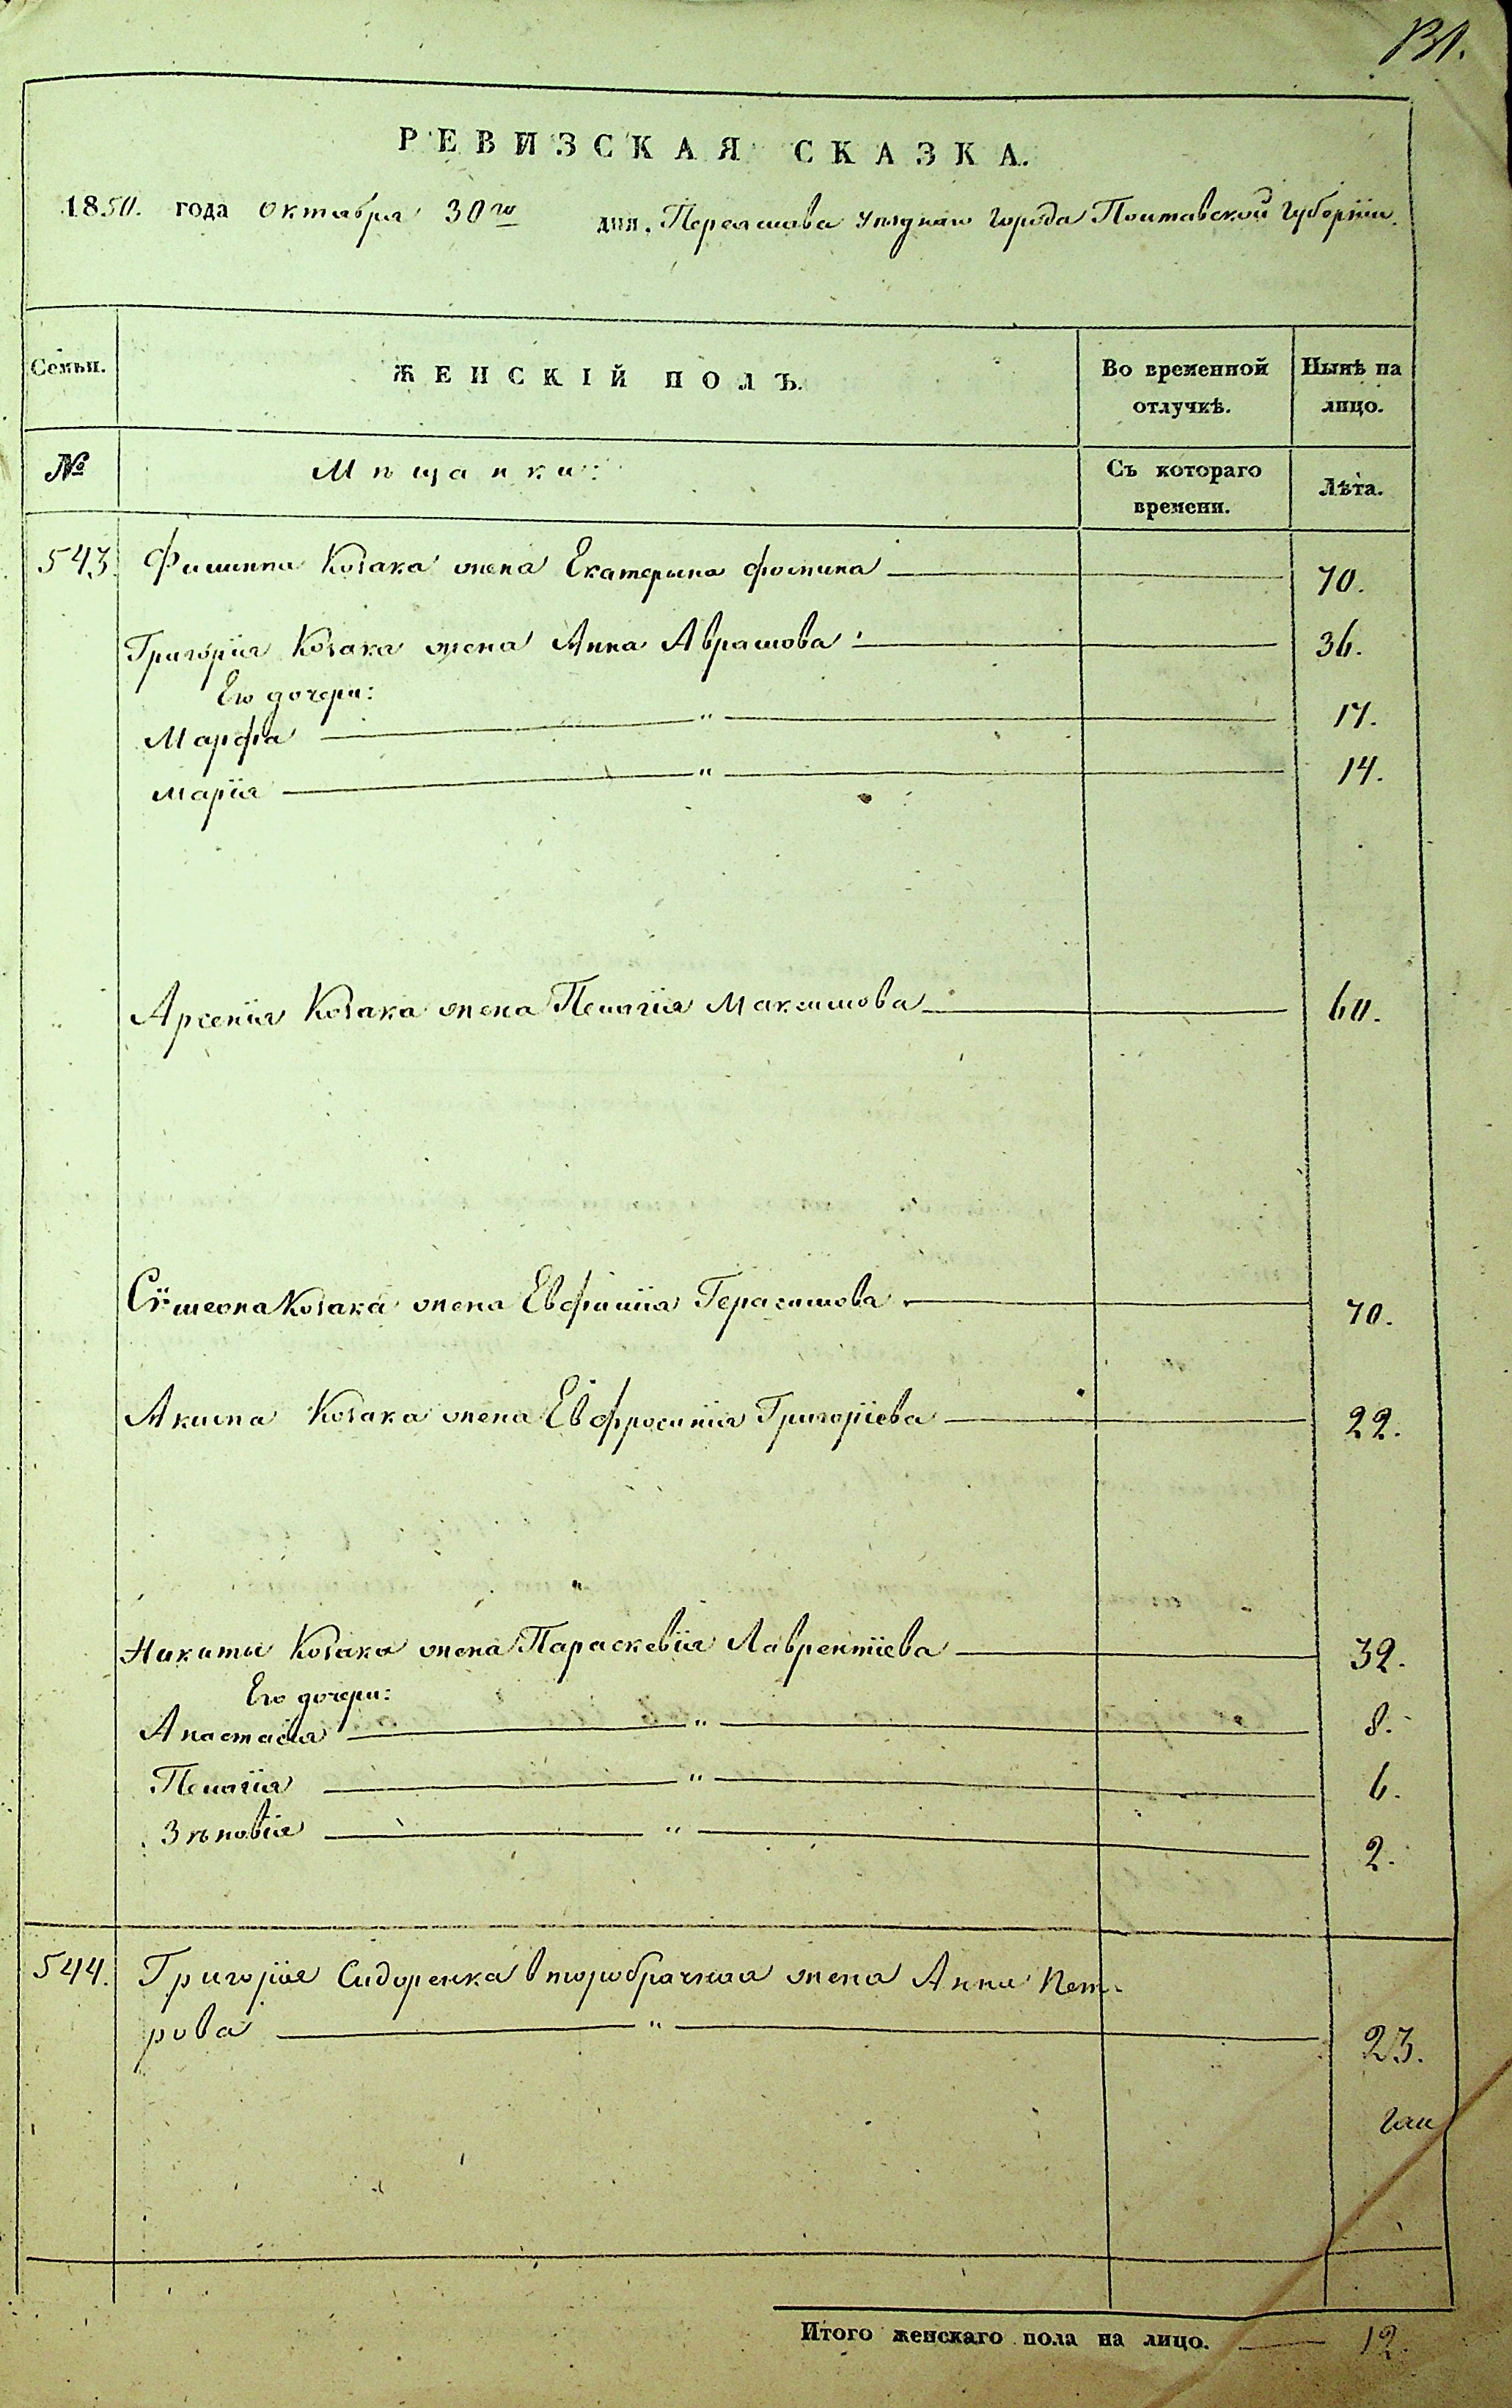 РЕВИЗСКАЯ СКАЗКА.
1850. года октября 30го дня. Переяслова уѣзднаго города Полтавской губерніи.
Семьи. ЖЕНСКІЙ ПОЛЪ. Во временной отлучкѣ. Нынѣ на лицо.
№ Мѣщанки: Съ котораго времени. Лѣта.
543. Филиппа Козака жена Екатерина Фомина 70.
Григорія Козака жена Анна Авралова 36.
Его дочери:
Марфа " 17.
Марія " 14.
Арсенія Козака жена Пелагія Максимова 60.
Сѵмеона Козака жена Евфимія Герасимова 70.
Акима Козака жена Евфросинія Григоріева 22.
Никиты Козака жена Параскевія Лаврентіева 32.
Его дочери:
Анастасія " 8.
Пелагія " 6.
Зѣновія " 2.
544. Григорія Сидоренка второбрачная жена Анна Пет-
рова " 23.
Итого женскаго пола на лицо. 12.